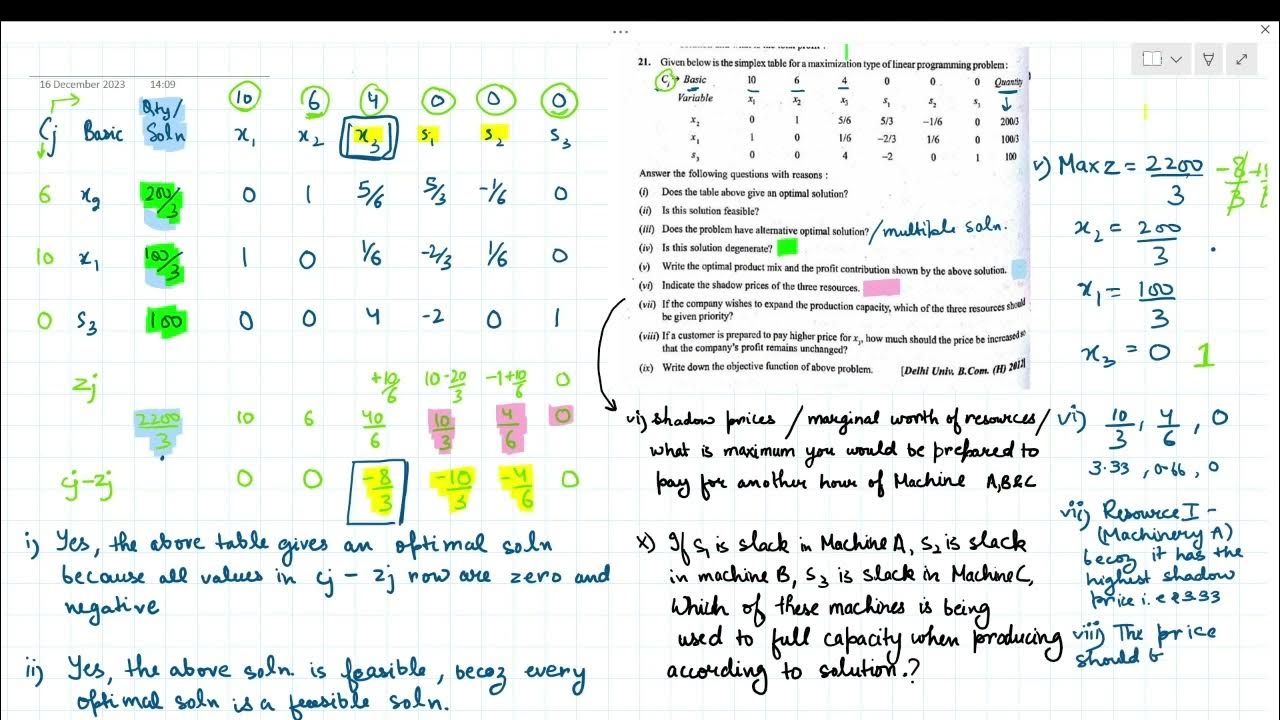 16 December 2023 14:09
Cj Basic Qty/ Soln 10 6 4 0 0 0
x1 x2 x3 s1 s2 s3
6 x2 200/3 0 1 5/6 5/3 -1/6 0
10 x1 100/3 1 0 1/6 -2/3 1/6 0
0 s3 100 0 0 4 -2 0 1
zj +10/6 10-20/3 -1+10/6 0
2200/3 10 6 40/6 10/3 4/6 0
cj-zj 0 0 -8/3 -10/3 -4/6 0
i) Yes, the above table gives an optimal soln
because all values in cj - zj row are zero and
negative
ii) Yes, the above soln. is feasible, becoz every
optimal soln is a feasible soln.
21. Given below is the simplex table for a maximization type of linear programming problem:
Cj Basic 10 6 4 0 0 0 Quantity
Variable x1 x2 x3 s1 s2 s3
x2 0 1 5/6 5/3 -1/6 0 200/3
x1 1 0 1/6 -2/3 1/6 0 100/3
s3 0 0 4 -2 0 1 100
Answer the following questions with reasons :
(i) Does the table above give an optimal solution?
(ii) Is this solution feasible?
(iii) Does the problem have alternative optimal solution? /multiple soln.
(iv) Is this solution degenerate?
(v) Write the optimal product mix and the profit contribution shown by the above solution.
(vi) Indicate the shadow prices of the three resources.
(vii) If the company wishes to expand the production capacity, which of the three resources should
be given priority?
(viii) If a customer is prepared to pay higher price for x3, how much should the price be increased so
that the company's profit remains unchanged?
(ix) Write down the objective function of above problem. [Delhi Univ. B.Com. (H) 2012]
vi) shadow prices / marginal worth of resources/
what is maximum you would be prepared to
pay for another hour of Machine A,B&C
x) If s1 is slack in Machine A, s2 is slack
in machine B, s3 is slack in Machine C,
Which of these machines is being
used to full capacity when producing
according to solution.?
v) Max z = 2200/3 -8/3
x2 = 200/3
x1 = 100/3
x3 = 0 1
vi) 10/3, 4/6, 0
3.33, 0.66, 0
vii) Resource I -
(Machinery A)
becoz it has the
highest shadow
price i.e ₹3.33
viii) The price
should b